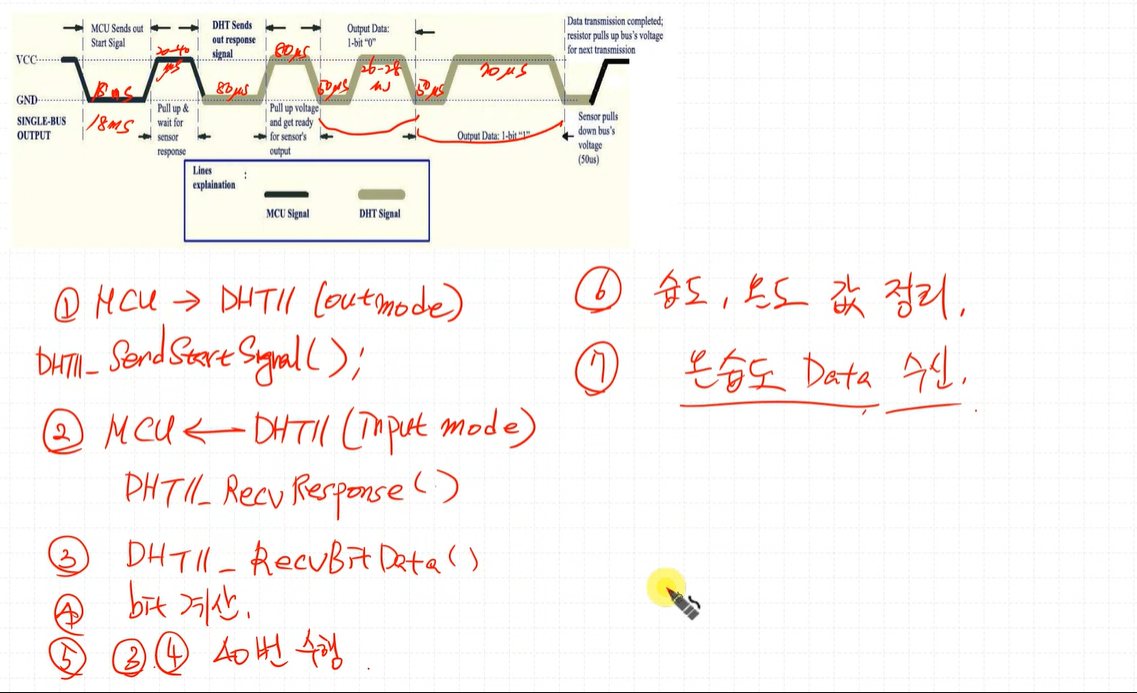 MCU Sends out
Start Sigal
DHT Sends
out response
signal
Output Data:
1-bit "0"
Data transmission completed;
resistor pulls up bus's voltage
for next transmission
VCC
20-40
μs
80μs
26-28
70μs
GND
80μs
50μs
50μs
SINGLE-BUS
OUTPUT
18ms
Pull up &
wait for
sensor
response
Pull up voltage
and get ready
for sensor's
output
Output Data: 1-bit "1"
Sensor pulls
down bus's
voltage
(50us)
Lines
explaination :
MCU Signal DHT Signal
① MCU → DHT11 (out mode)
DHT11_SendStartSignal();
② MCU ← DHT11 (Input mode)
DHT11_RecvResponse()
③ DHT11_RecvBitData()
④ bit 계산.
⑤ ③.④ 40번 수행.
⑥ 습도, 온도 값 정리.
⑦ 온습도 Data 수신.